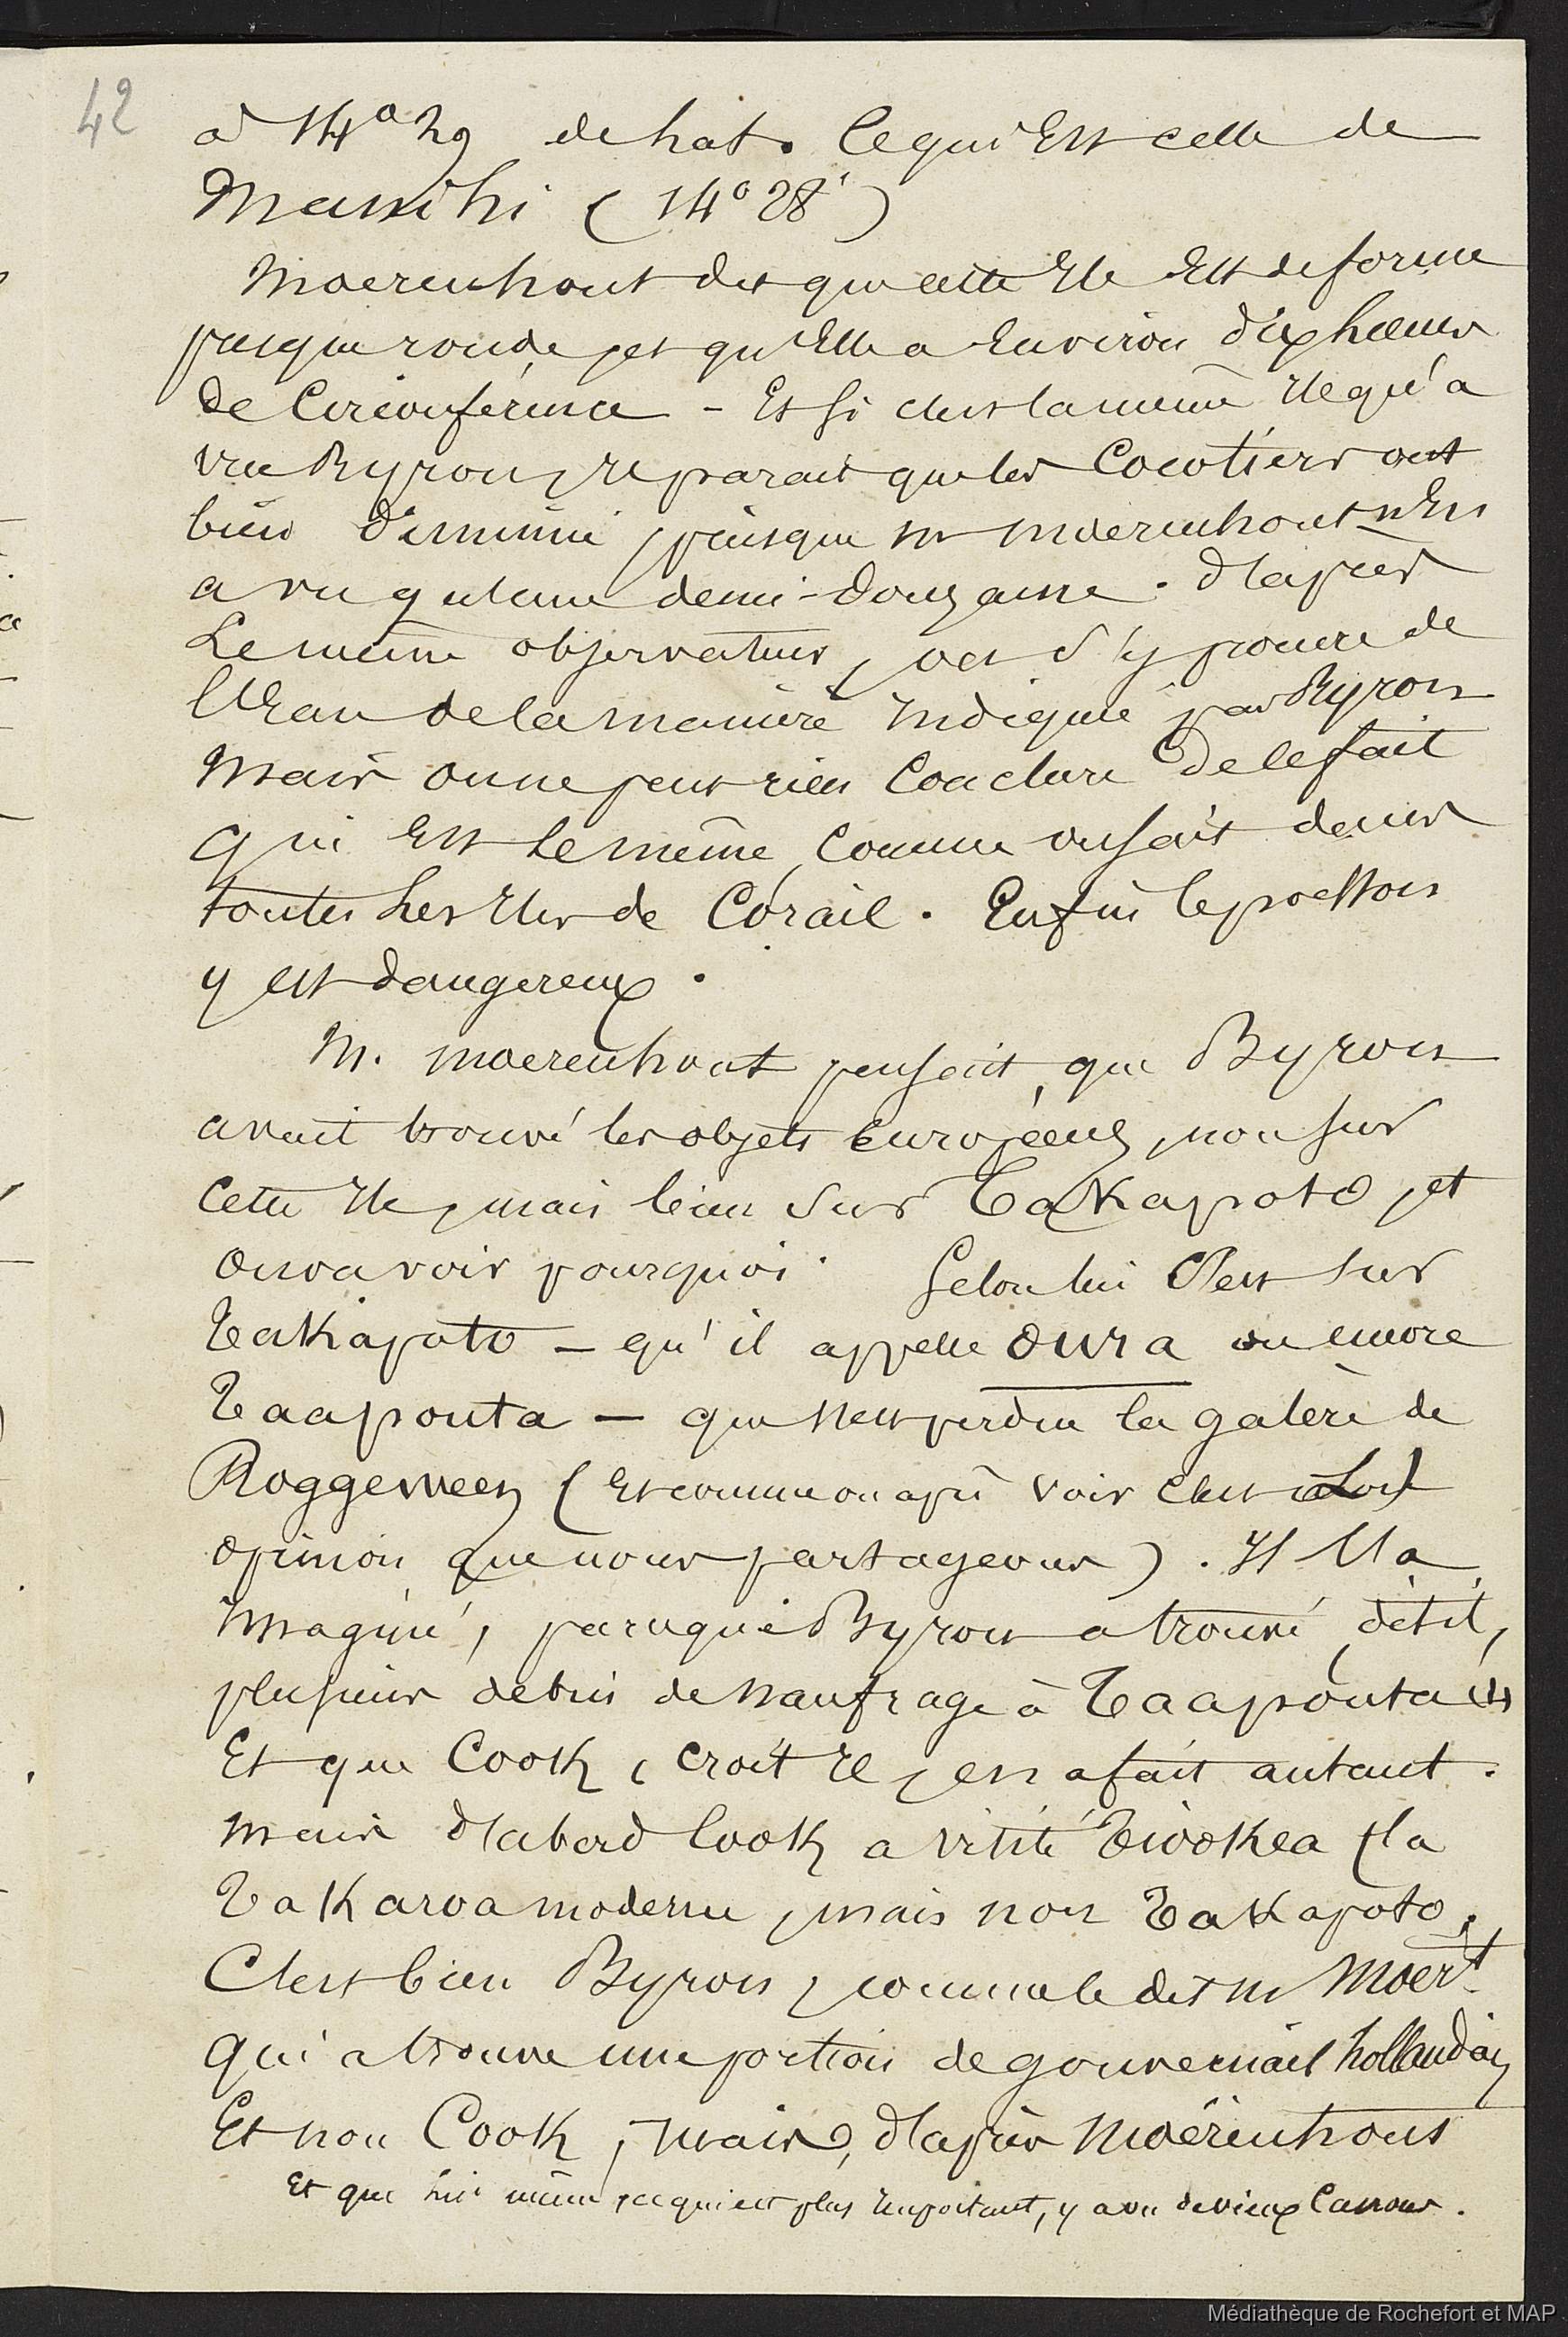 42
à 14° 29 de lat. ce qui est celle de
Manihi (14° 28')
Moerenhout dit que cette île est de forme
presque ronde, et qu'elle a environ dix lieues
de circonférence - Et si c'est la même île qu'a
vue Byron, il parait que les cocotiers ont
bien diminué, puisque Mr Moerenhout n'en
a vu qu'une demi-douzaine. D'après
le même observateur, on s'y procure de
l'eau de la manière indiquée par Byron
Mais on ne peut rien conclure de ce fait
qui est le même, comme on sait dans
toutes les îles de Corail. Enfin le poisson
y est dangereux.
M. Moerenhout pensait, que Byron
avait trouvé les objets européens, non sur
cette île, mais bien sur Takapoto, et
on va voir pourquoi. Selon lui c'est sur
Takapoto - qu'il appelle Oura ou encore
Taapouta - que s'est perdue la galère de
Roggeween (et comme on a pu voir c'est
opinion que nous partageons). Il l'a
imaginé, parceque Byron a trouvé, dit-il,
plusieurs débris de naufrage à Taapouta (1)
Et que Cook, croit il, en a fait autant.
Mais d'abord Cook a visité Tiookea (la
Takaroa moderne, mais non Takapoto.
C'est bien Byron, comme le dit Mr Moert
qui a trouvé une portion de gouvernail hollandais
Et non Cook, mais, d'après Moërenhout
Et que lui même, ce qui est plus important, y a vu de vieux canons.
Médiathèque de Rochefort et MAP